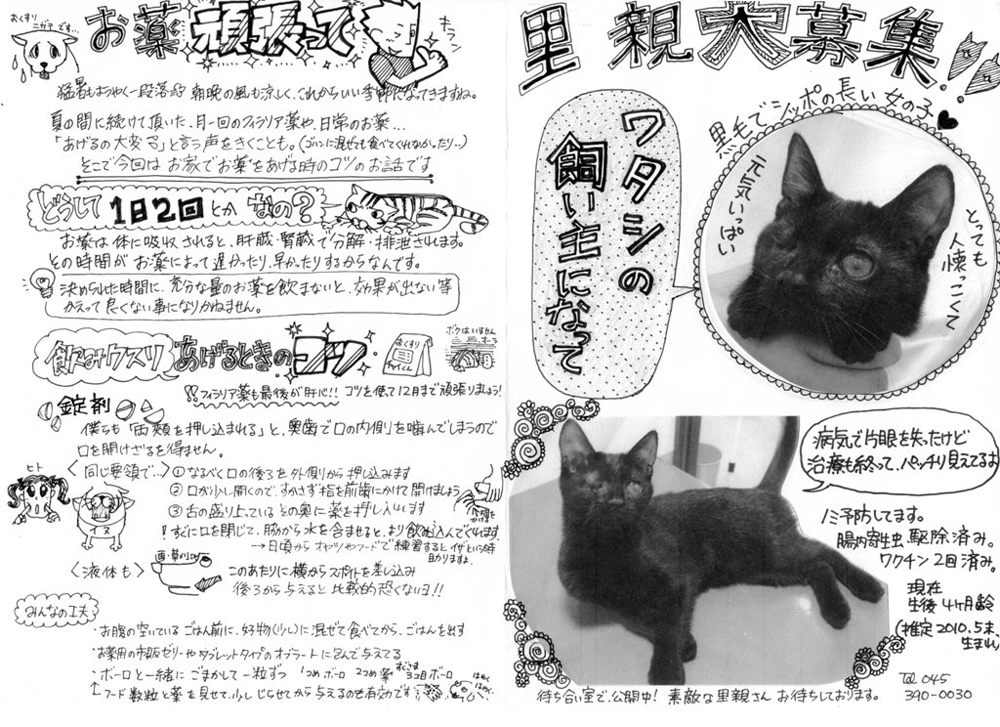 おくすり
ニガテです…
お薬 頑張って
キラン
猛暑もようやく一段落し 朝晩の風も涼しく、これからいい季節になってきますね。
夏の間に続けて頂いた、月一回のフィラリア薬や、日常のお薬…
「あげるの大変で」と言う声をきくことも。(ゴハンに混ぜても食べてくれなかったり…)
そこで今回は お家でお薬をあげる時のコツのお話です
どうして 1日2回とか なの？
お薬は体に吸収されると、肝臓・腎臓で分解・排泄されます。
その時間が お薬によって遅かったり、早かったりするからなんです。
決められた時間に、充分な量のお薬を飲まないと、効果が出ない等
かえって良くない事になりかねません。
飲みグスリ あげるときの コツ
おくすり
ボクはいません
フィラリア薬も最後が肝心!! コツを使って12月まで頑張りましょう！
錠剤
僕らも「両頬を押し込まれる」と、奥歯で口の内側を噛んでしまうので
口を開けざるを得ません。
ヒト
イヌ
〈同じ要領で…〉
①なるべく口の後ろを外側から押し込みます
②口が少し開くので、すかさず指を前歯にかけて開けましょう
③舌の盛り上っているとの奥に薬を押し入れます
！すぐに口を閉じて、脇から水を含ませると、より飲み込んでくれます。
→日頃からオヤツやフードで練習するとイザという時
助かりますよ。
〈液体も〉
このあたりに横からスポイトを差し込み
後ろから与えると 比較的恐くないヨ!!
みんなの工夫
・お腹の空いているごはん前に、好物(少し)に混ぜて食べてから、ごはんを出す
・お薬用の市販ゼリーやタブレットタイプのオブラートに包んで与える
・ボーロと一緒にごまかして一粒ずつ 1つめ ボーロ 2つめ 薬 3つめ ボーロ
フード数粒と薬を見せて、少しじらせてから与えるのも有効です！
里親大募集!!
黒毛でシッポの長い女の子
ワタシの
飼い主になって
元気いっぱい
とっても
人懐っこくて
病気で片眼を失ったけど
治療も終って、パッチリ見えてるよ
ノミ予防してます。
腸内寄生虫、駆除済み。
ワクチン2回済み。
現在
生後4ヶ月齢
(推定2010.5末
生まれ)
待ち合い室で、公開中！ 素敵な里親さん お待ちしております。
Tel 045
390-0030